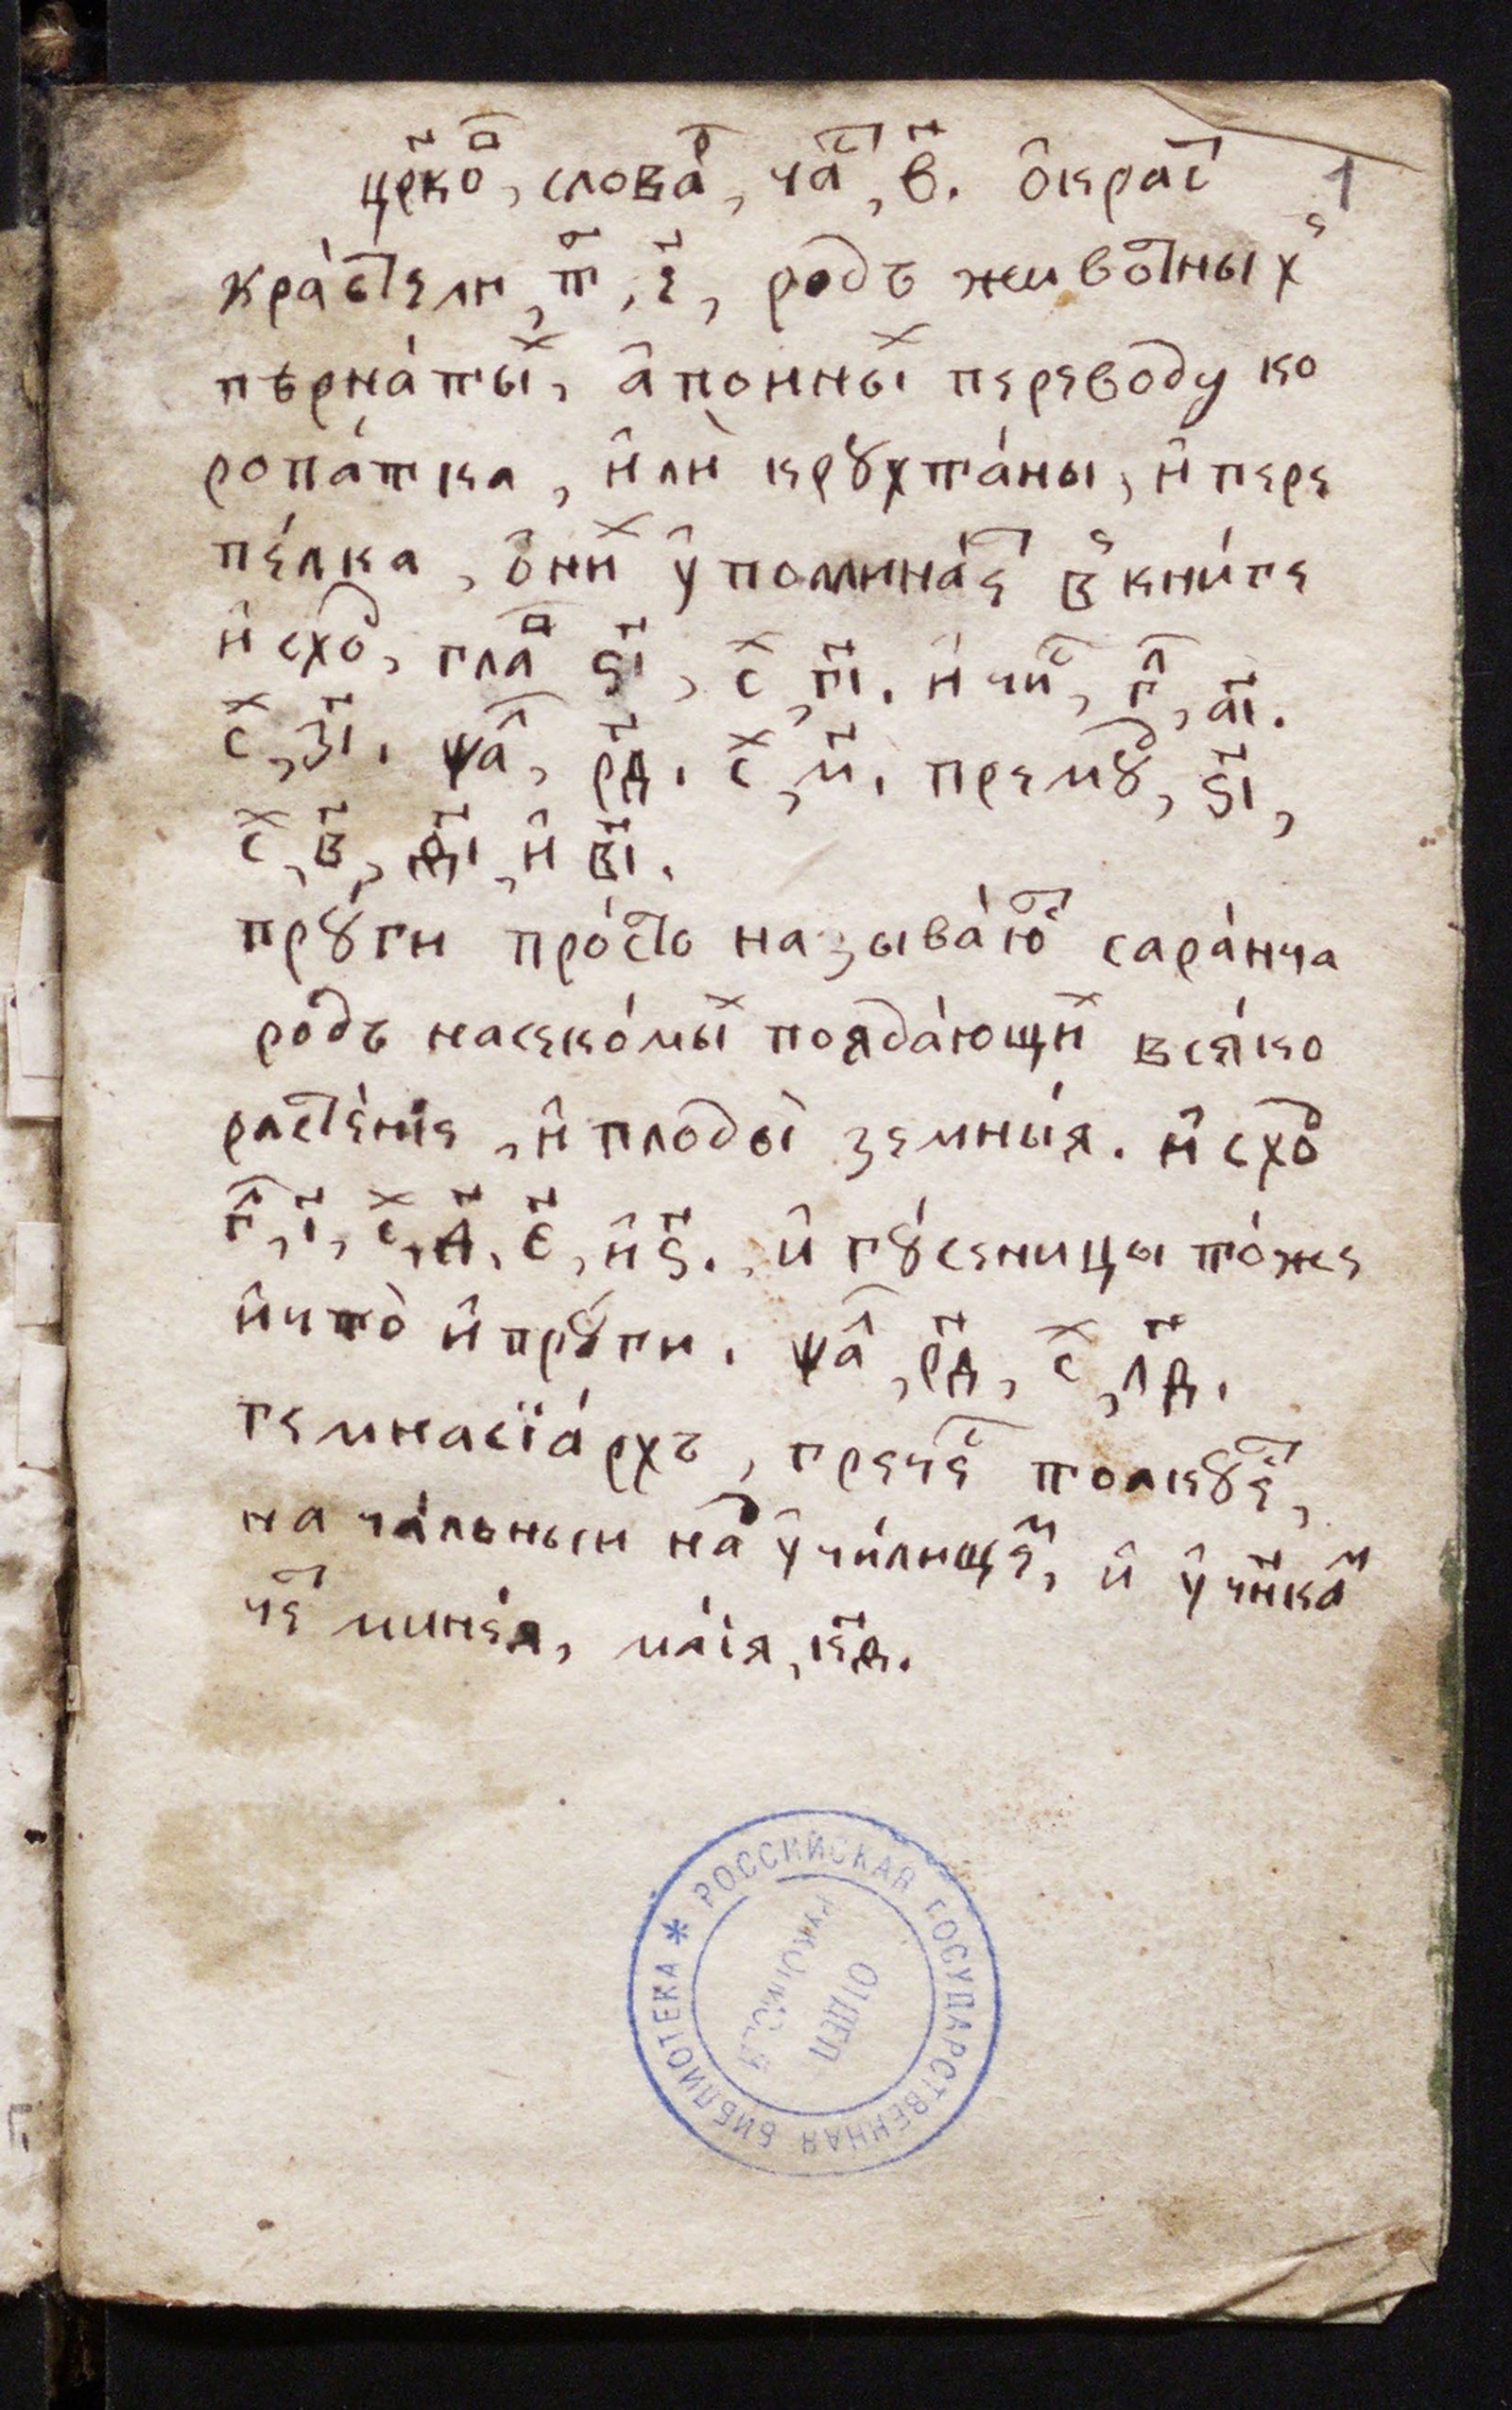 црко҃в, словаⷬ, чаⷭ, в҃. ѻ҆краⷭ 1
кра́стели, тⷪ, є҃, родъ животныхъ
пѣрна́тыⷯ, а҆поиныⷯ переводу ко
ропа́тка, и҆лѝ крꙋхта́ны, и҆ пере
пе́лка, ѻ҆ниⷯ ѹ҆помина́еⷮ въ кни́ге
и҆схоⷣ, глаⷡ ѕ҃і, сⷯ, г҃і. и҆ чиⷭ, гⷧ, а҃і.
сⷯ, з҃і. ѱаⷧ, р҃д. сⷯ, м҃. премꙋⷣ, ѕ҃і,
сⷯ, в҃, д҃і, и҆ в҃і.
прꙋ́ги про́сто называ́юⷮ сара́нча
родъ насеко́мыⷯ пояда́ющиⷯ всѧ́ко
расте́нїе, и҆ плоды̀ земны́ѧ. и҆схоⷣ
гⷧ, і҃, сⷯ, д҃, є҃, и҆ ѕ҃. и҆ гꙋ́сеницы то́же
и҆что̀ и҆ прꙋ́ги. ѱаⷧ, р҃д, сⷯ, л҃д.
гемнасїа́рхъ, гречеⷭ толкꙋ́еⷮ,
нача́льныи наⷣ ѹ҆чи́лищеⷨ, и҆ ѹ҆чн҃каⷨ
чеⷮ мине́ѧ, ма́їѧ, к҃д.
РОССИЙСКАЯ ГОСУДАРСТВЕННАЯ БИБЛИОТЕКА *
ОТДЕЛ
РУКОПИСЕЙ